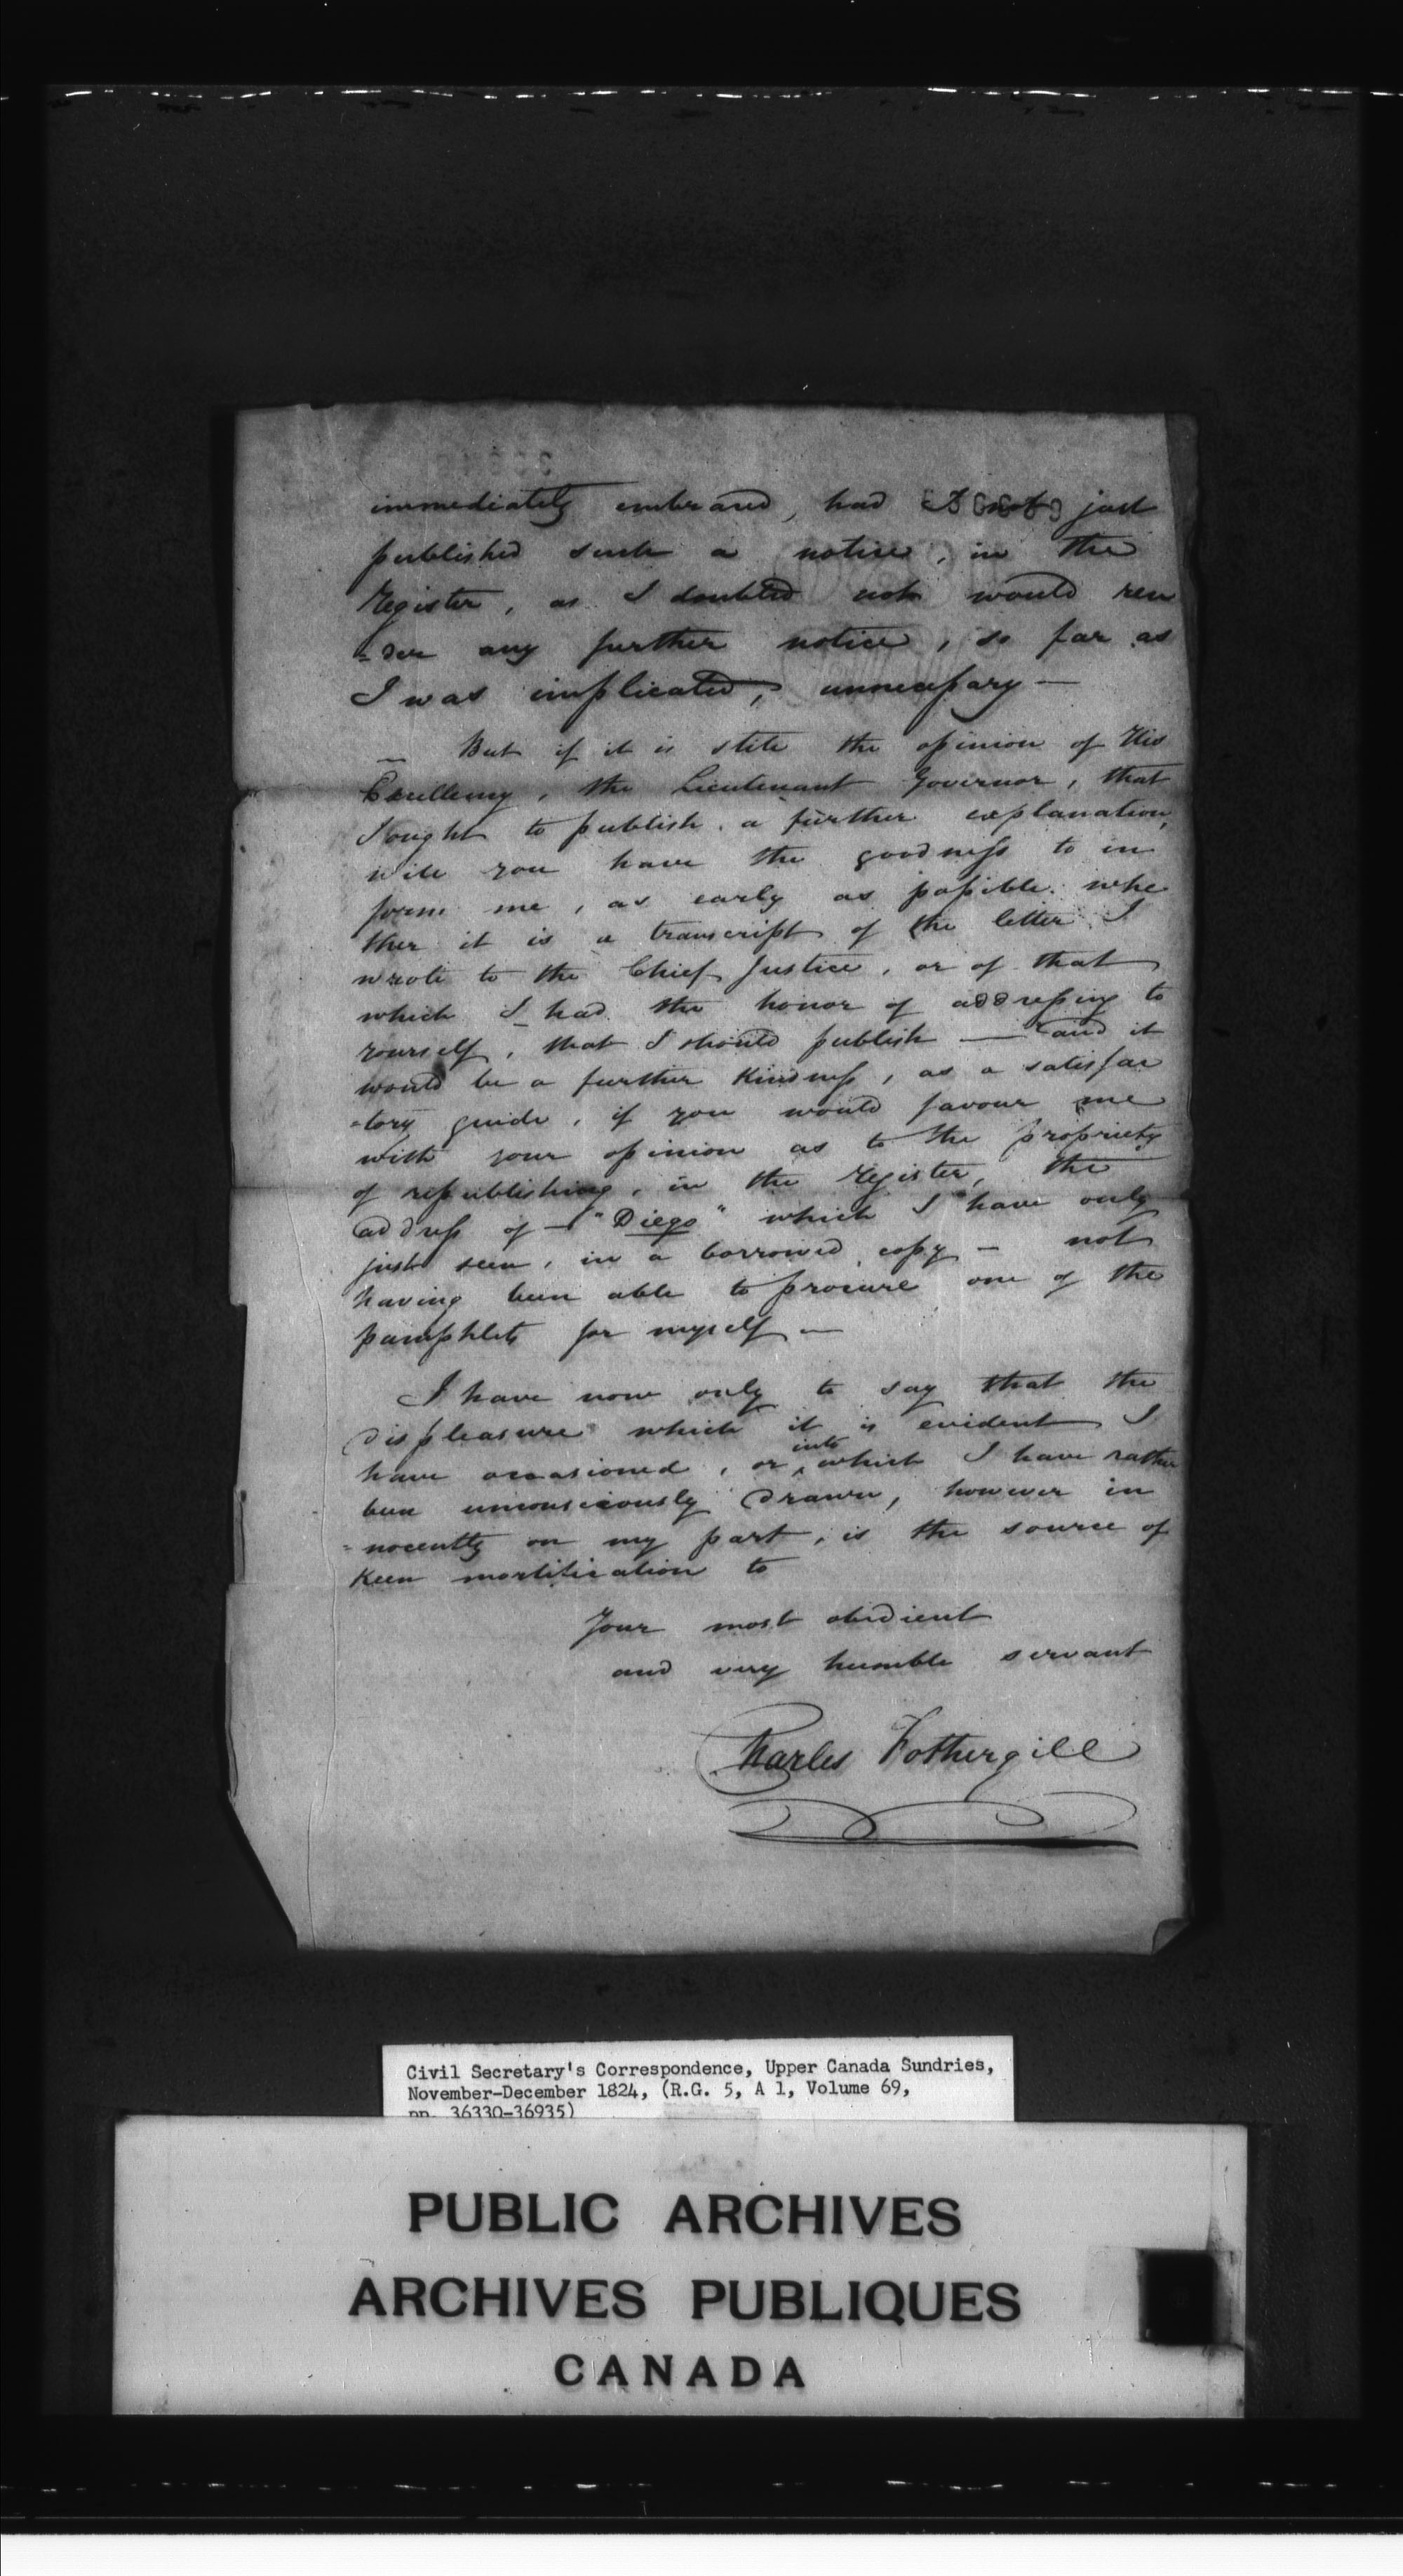 immediately embraced, had I not just
published such a notice, in the
Register, as I doubted not would ren
-der any further notice, so far as
I was implicated, unnecessary —
— But if it is still the opinion of His
Excellency, the Lieutenant Governor, that
I ought to publish a further explanation,
will you have the goodness to in
form me, as early as possible, whe
ther it is a transcript of the letter I
wrote to the Chief Justice, or of that
which I had the honor of addressing to
yourself, that I should publish — and it
would be a further kindness, as a satisfac
-tory guide, if you would favour me
with your opinion as to the propriety
of republishing, in the Register, the
address of — "Diego" which I have only
just seen, in a borrowed copy — not
having been able to procure one of the
pamphlets for myself —
I have now only to say that the
displeasure which it is evident I
have occasioned, or into which I have rather
been unconsciously drawn, however in
-nocently on my part, is the source of
keen mortification to
Your most obedient
and very humble servant
Charles Fothergill
Civil Secretary's Correspondence, Upper Canada Sundries,
November-December 1824, (R.G. 5, A 1, Volume 69,
pp. 36330-36935)
PUBLIC ARCHIVES
ARCHIVES PUBLIQUES
CANADA